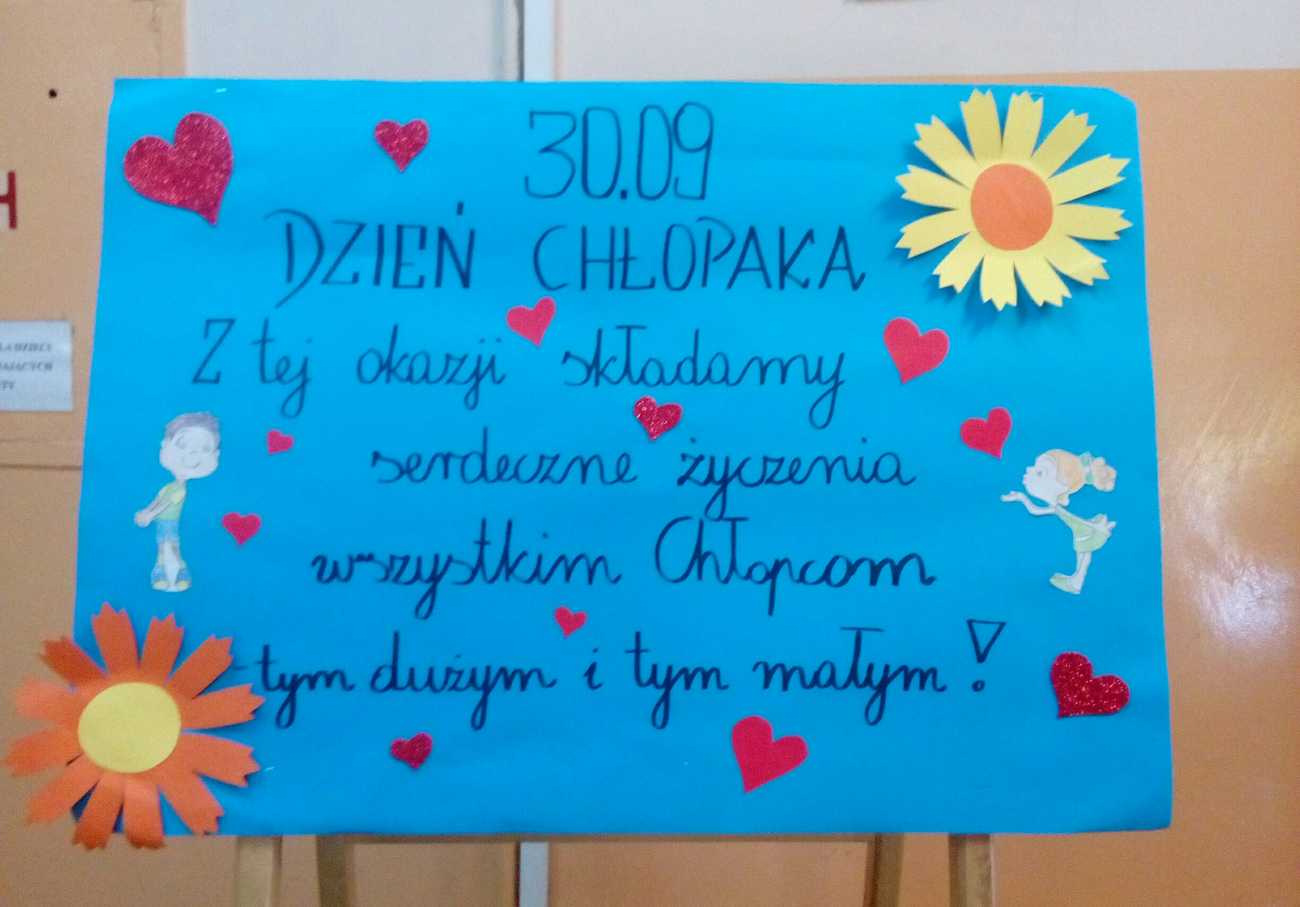 30.09
DZIEŃ CHŁOPAKA
Z tej okazji składamy
serdeczne życzenia
wszystkim Chłopcom
tym dużym i tym małym!